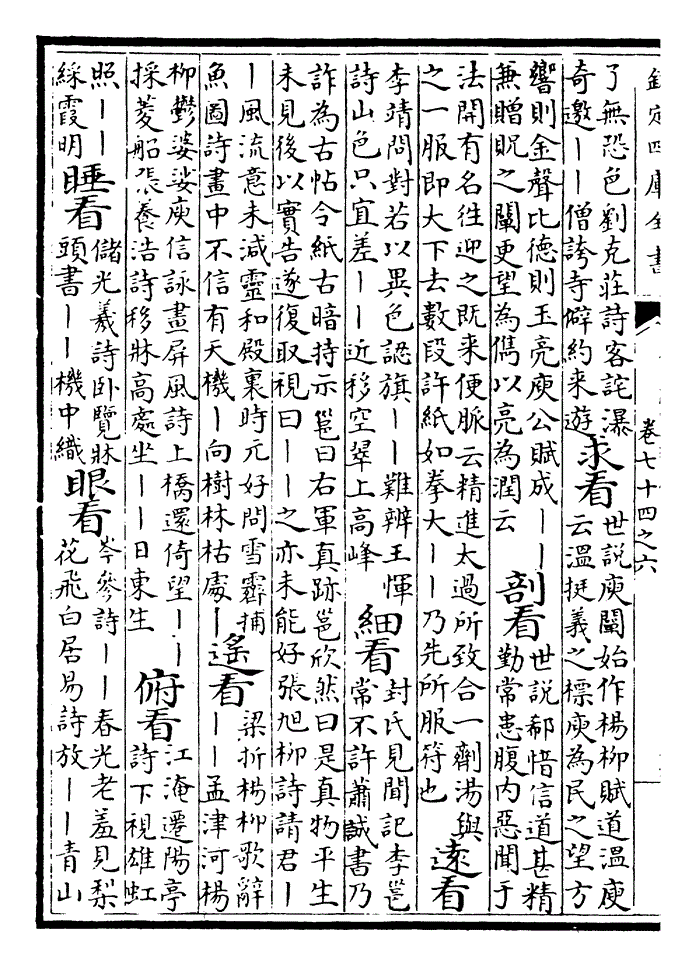 欽定四庫全書
卷七十四之六
了無恐色劉克莊詩客詫瀑
奇邀||僧誇寺僻約来遊
求看
世說庾闡始作楊柳賦道溫庾
云溫挺義之標庾為民之望方
響則金聲比德則玉亮庾公賦成||
兼贈貺之闡更望為儁以亮為潤云
剖看
世說郗愔信道甚精
勤常患腹内惡聞于
法開有名往迎之既来便脈云精進太過所致合一劑湯與
之一服即大下去數段許紙如拳大||乃先所服符也
遠看
李靖問對若以異色認旗||難辨王惲
詩山色只宜差||近移空翠上高峰
細看
封氏見聞記李邕
常不許蕭誠書乃
詐為古帖令紙古暗持示邕曰右軍真跡邕欣然曰是真物平生
未見後以實告遂復取視曰||之亦未能好張旭柳詩請君|
|風流意未減靈和殿裏時元好問雪霽捕
魚圖詩畫中不信有天機|向樹林枯處|
遙看
梁折楊柳歌辭
||孟津河楊
柳鬱婆娑庾信詠畫屏風詩上橋還倚望||
採菱船張養浩詩移牀高處坐||日東生
俯看
江淹遷陽亭
詩下視雄虹
照||
綵霞明
睡看
儲光羲詩卧覽牀
頭書||機中織
眼看
岑參詩||春光老羞見梨
花飛白居易詩放||青山